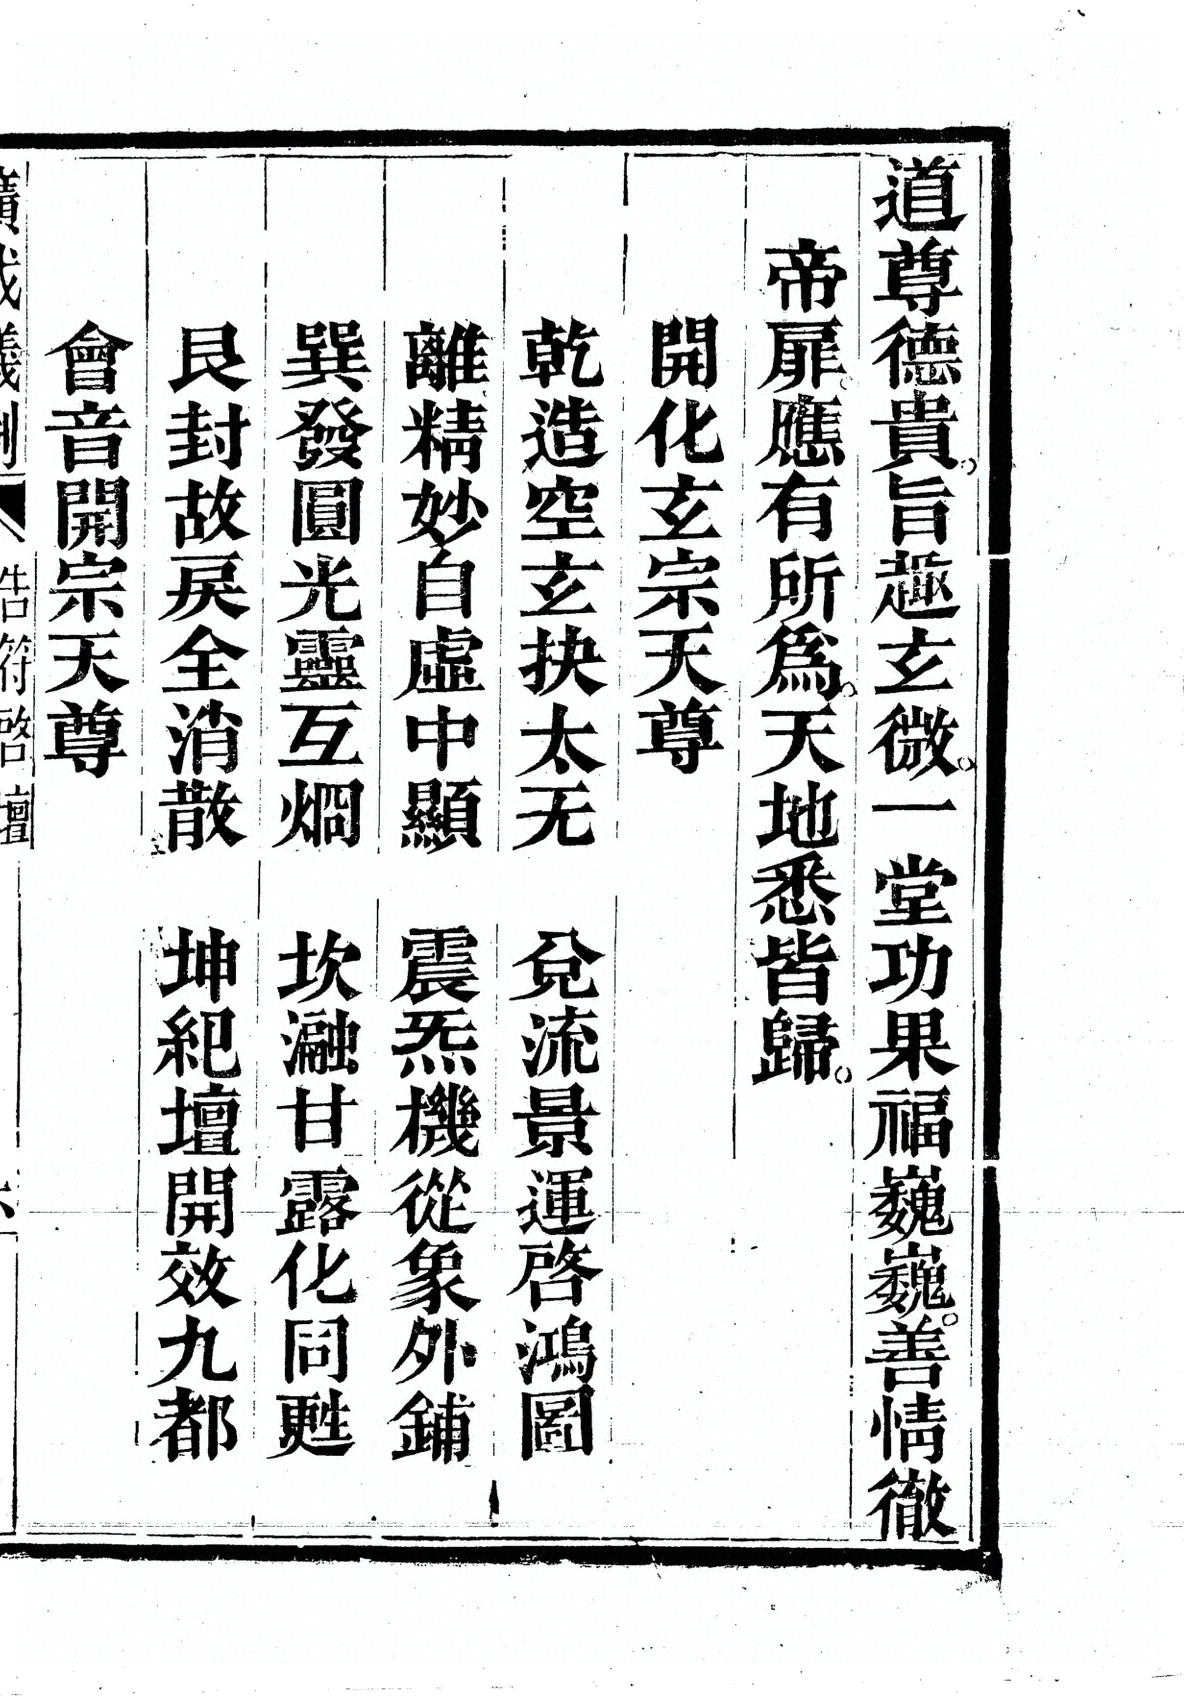 道尊德貴。旨趣玄微。一堂功果福巍巍。善情徹
帝扉。應有所爲。天地悉皆歸。
開化玄宗天尊
乾造空玄抉太无　兌流景運啓鴻圖
離精妙自虛中顯　震炁機從象外鋪
巽發圓光靈互烱　坎瀜甘露化同甦
艮封故戾全消散　坤紀壇開效九都
會音開宗天尊
廣成儀制　告符啓壇